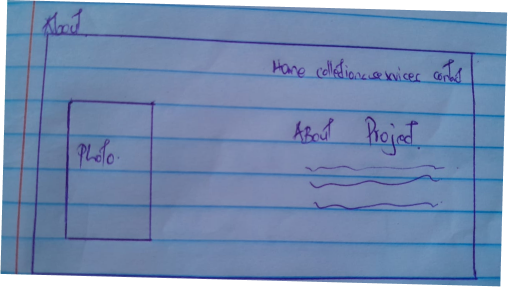 About
Home collections services contact
Photo.
About Project.